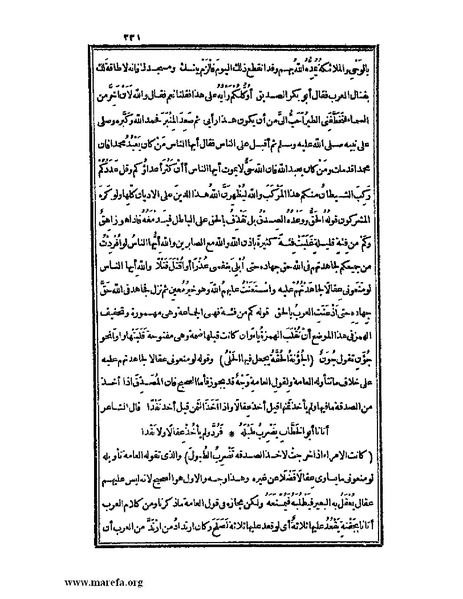 ٢٢١
بالوحي والملائكة يمدّه الله بهم وقد انقطع ذلك اليوم فالزم بيتك ومسجدك فانه لا طاقة لك
بقتال العرب فقال أبو بكر الصديق أوكلكم رأيه على هذا فقلنا نعم فقال والله لأن أخر من
السماء فتخطفني الطير أحب الي من أن يكون هذا رأيي ثم صعد المنبر فحمد الله وكبره وصلى
على نبيه صلى الله عليه وسلم ثم أقبل على الناس فقال أيها الناس من كان يعبد محمدا فان
محمدا قد مات ومن كان يعبد الله فان الله حيّ لا يموت أيها الناس أان كثر أعداؤكم وقل عددكم
ركب الشيطان منكم هذا المركب والله ليظهرن الله هذا الدين على الاديان كلها ولو كره
المشركون قوله الحق ووعده الصدق بل نقذف بالحق على الباطل فيدمغه فاذا هو زاهق
وكم من فئة قليلة غلبت فئة كثيرة باذن الله والله مع الصابرين والله أيها الناس لو أفردت
من جميعكم لجاهدتهم في الله حق جهاده حتى أبلي بنفسي عذرا أو أقتل قتلا والله أيها الناس
لو منعوني عقالا لجاهدتهم عليه واستعنت عليهم الله وهو خير معين ثم نزل فجاهد في الله حق
جهاده حتى أذعنت العرب بالحق قوله كم من فئة فهي الجماعة وهي مهموزة وتخفيف
الهمز في هذا الموضع أن تقلب الهمزة ياء وان كانت قبلها ضمة وهي مفتوحة قلبتها واوا نحو
جؤن تقول جون (الجؤنة الحقة يجعل فيها الحلي) وقوله لو منعوني عقالا لجاهدتهم عليه
على خلاف ما تتأوله العامة ولقول العامة وجه قد يجوز فأما الصحيح فان المصدق اذا أخذ
من الصدقة ما فيها ولم يأخذ ثمنها قيل أخذ عقالا واذا أخذ الثمن قيل أخذ نقدا قال الشاعر
أتانا أبو الخطاب يضرب طبله * فردّ ولم يأخذ عقالا ولا نقدا
(كانت الامراء اذا خرجت لاخذ الصدقة تضرب الطبول) والذي تقوله العامة تأويله
لو منعوني ما يساوي عقالا فضلا عن غيره وهذا وجه والاول هو الصحيح لانه ليس عليهم
عقال يعقل به البعير فيطلبه فيمنعه ولكن مجازه في قول العامة ما ذكرنا ومن كلام العرب
أتانا بجفنة يقعد عليها ثلاثة أي لو قعد عليها ثلاثة لصلح وكان ارتداد من ارتد من العرب أن
www.marefa.org